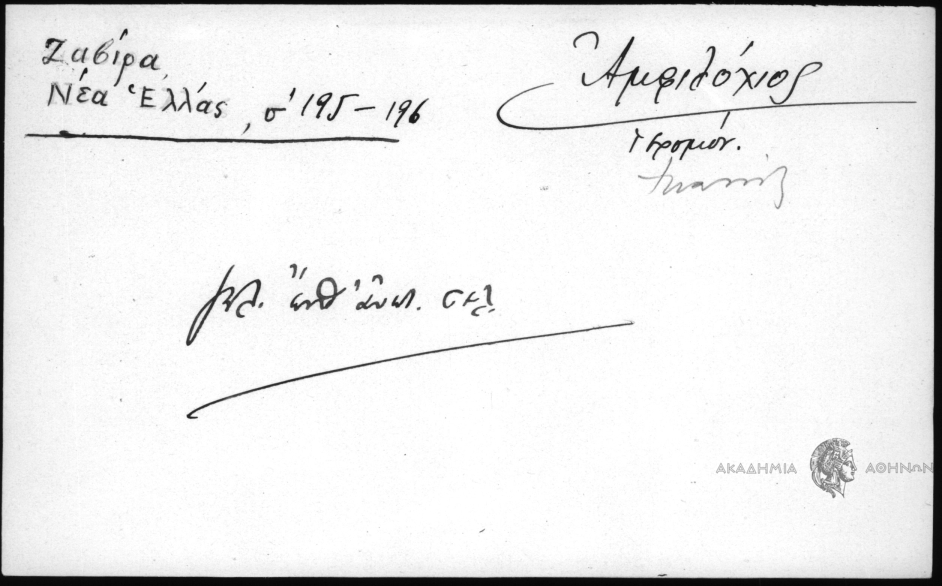 Ζαβίρα
Νέα Ἑλλάς, σ' 195 – 196
Ἀμφιλόχιος
Ἱερομόν.
βλ. ἀνωτ. σελ.
ΑΚΑΔΗΜΙΑ ΑΘΗΝΩΝ